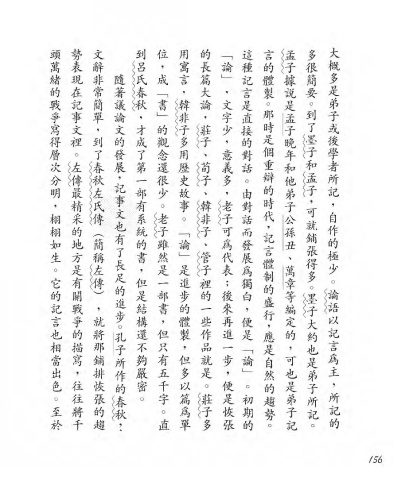 大概多是弟子或後學者所記，自作的極少。論語以記言爲主，所記的
多很簡要。到了墨子和孟子，可就鋪張得多。墨子大約也是弟子所記。
孟子據說是孟子晚年和他弟子公孫丑、萬章等編定的，可也是弟子記
言的體製。那時是個重辯的時代，記言體制的盛行，應是自然的趨勢。
這種記言是直接的對話。由對話而發展爲獨白，便是「論」。初期的
「論」，文字少，意義多，老子可爲代表；後來再進一步，便是恢張
的長篇大論，莊子、荀子、韓非子、管子裡的一些作品就是。莊子多
用寓言，韓非子多用歷史故事。「論」是進步的體製，但多以篇爲單
位，成「書」的觀念還很少。老子雖然是一部書，但只有五千字。直
到呂氏春秋，才成了第一部有系統的書，但是結構還不夠嚴密。
隨著議論文的發展，記事文也有了長足的進步。孔子所作的春秋，
文辭非常簡單，到了春秋左氏傳（簡稱左傳），就將那鋪排恢張的趨
勢表現在記事文裡。左傳最精采的地方是有關戰爭的描寫，往往將千
頭萬緒的戰爭寫得層次分明，栩栩如生。它的記言也相當出色。至於
156